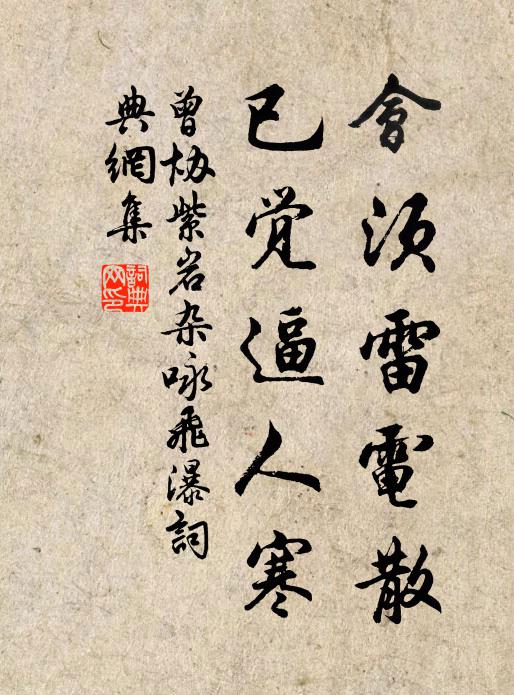 會須雷電散
已覺逼人寒
曾協紫岩杂咏飛瀑詞
典網集
詞典网印